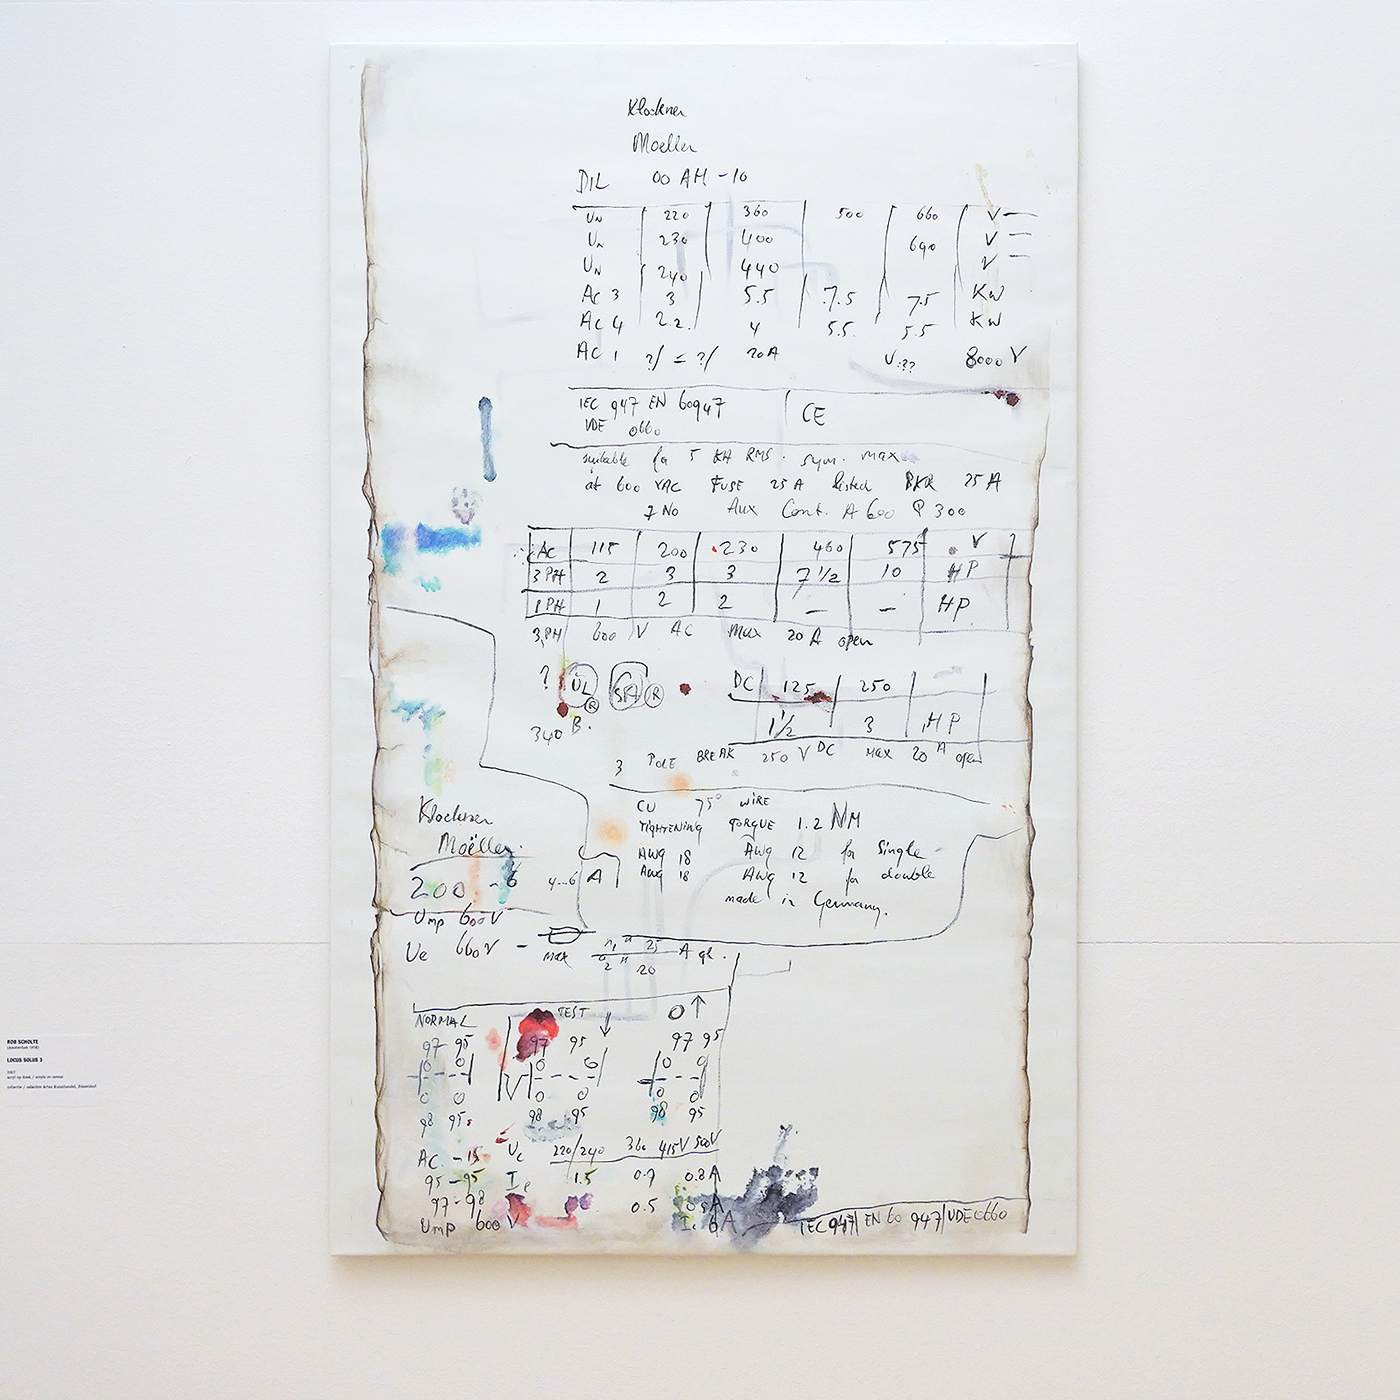 Klockner
Moeller
DIL 00 AM - 10
UN 220 360 500 660 V
UN 230 400 690 V
UN 240 440 V
AC 3 3 5.5 7.5 7.5 KW
AC 4 2.2. 4 5.5. 5.5 KW
AC 1 ?/ = ?/ 20 A U ?? 8000 V
IEC 947 EN 60947 CE
VDE 0660
suitable for 5 KA RMS. sym. max
at 600 VAC FUSE 25 A listed BKR 25 A
7 No Aux Cont. A 600 P 300
AC 115 200 230 460 575 V
3 PH 2 3 3 7 1/2 10 HP
1 PH 1 2 2 – – HP
3 PH 600 V AC Max 20 A open
? UL ® SA ®
340 B.
DC 125 250
1 1/2 3 HP
3 POLE BREAK 250 V DC MAX 20 A open
CU 75° WIRE
TIGHTENING TORQUE 1.2 NM
AWG 18 AWG 12 for Single
AWG 18 AWG 12 for double
made in Germany.
Klockner
Moëller.
200 - 6 4...6 A
Ump 600 V
Ue 660 V - max 25 20 A gl.
NORMAL TEST O ↑
97 95 97 95 97 95
98 95 98 95 98 95
AC - 15 Ue 220/240 360 415V 500V
95 - 95 Ie 1.5 0.7 0.8 A
97 - 98 0.5 0.5 A
Ump 600 V 6 A
IEC 947 | EN 60 947 | VDE 0660
ROB SCHOLTE
LOCUS SOLUS 3